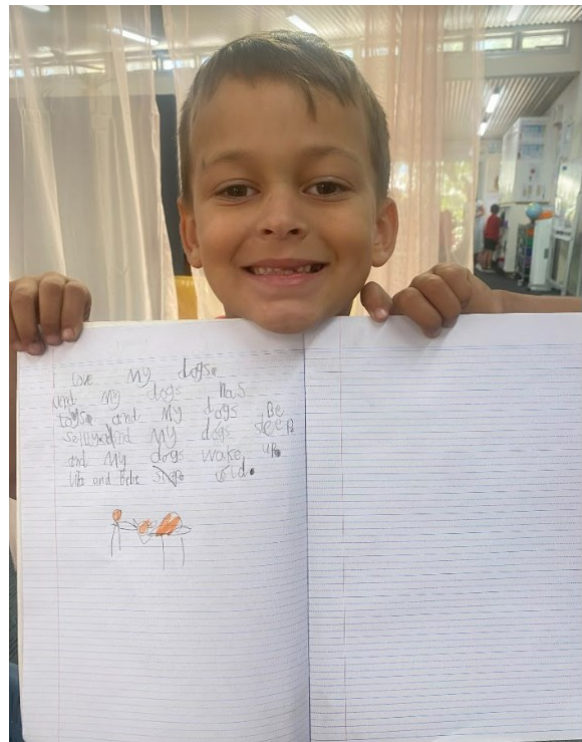 I love my dogs.
and my dogs has
toys. and my dogs Be
and my dogs sleep
and my dogs wake up.
and